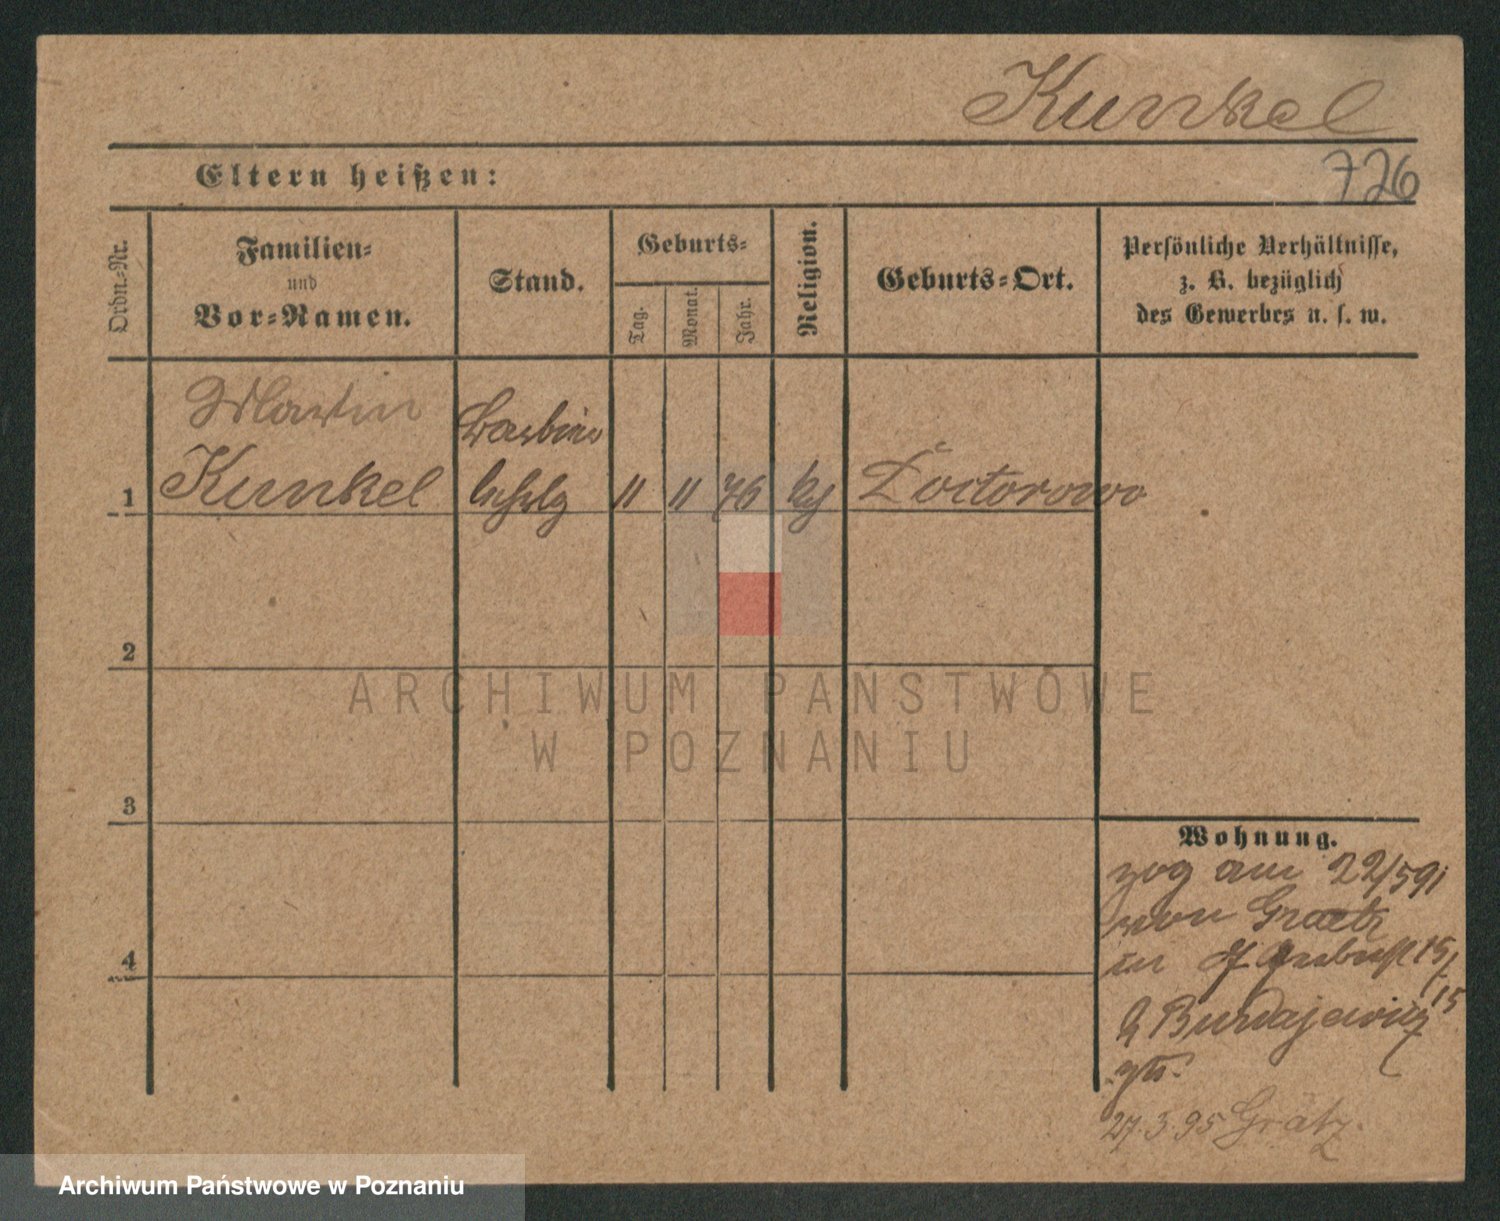 Kunkel
Eltern heißen:
726
Ordn.-Nr.
Familien-
und
Vor-Namen.
Stand.
Geburts-
Tag.
Monat.
Jahr.
Religion.
Geburts-Ort.
Persönliche Verhältnisse,
z. B. bezüglich
des Gewerbes u. s. w.
Martin
Barbier
1 Kunkel lehrlg 11 11 76 kg Doctorowo
2
3
4
Wohnung.
zog am 22/5 91
von Graetz
in 15/
15
Burdajewicz
27.3.95 Grätz.
ARCHIWUM PAŃSTWOWE
W POZNANIU
Archiwum Państwowe w Poznaniu